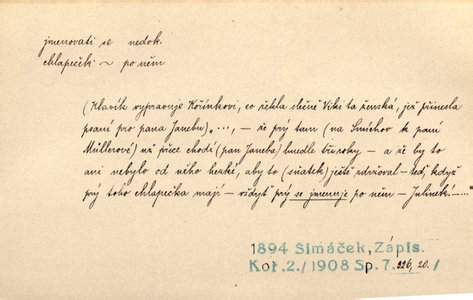 jmenovati se nedok.
chlapeček ~ po něm
(Hlavík vypravuje Kořínkovi, co řekla slečně Viki ta ženská, jež přinesla
psaní pro pana Janebu) „..., – že prý tam (na Smíchov k paní
Müllerové) už přece chodí (pan Janeba) hnedle tři roky – a že by to
ani nebylo od něho hezké, aby to (sňatek) ještě zdržoval – teď, když
prý toho chlapečka mají – vždyť prý se jmenuje po něm – Julinek! – ...“
1894 Šimáček, Zápis.
Koř.2./1908 Sp.7. 226, 20. /